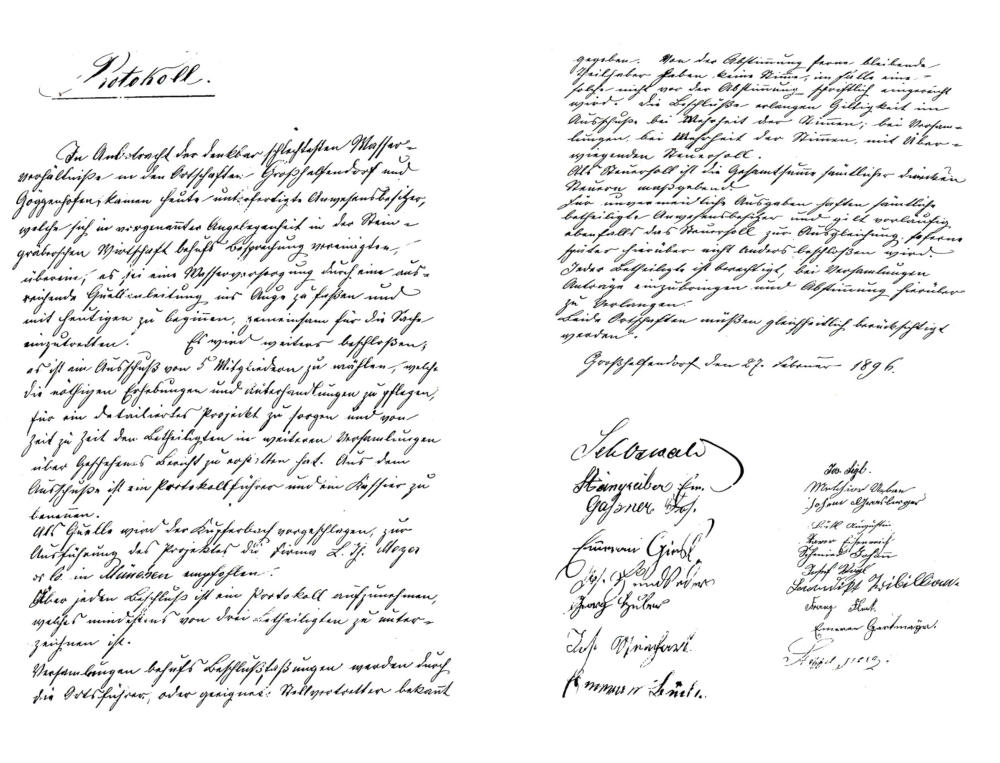 Protokoll.
In Anbetracht der denkbar schlechtesten Wasser-
verhältniße in den Ortschaften Großhelfendorf und
Göggenhofen, kamen heute unterfertigte Anwesensbesitzer,
welche sich in vorgenannter Angelegenheit in der Stein-
gräberschen Wirtschaft behufs Besprechung vereinigten,
überein, es sei eine Wasserversorgung durch eine aus-
reichende Quelleinleitung ins Auge zu faßen und
mit heutigen zu beginnen, gemeinsam für die Sache
einzutretten. Es wird weiters beschloßen,
es ist ein Ausschuß von 5 Mitgliedern zu wählen, welche
die nöthigen Erhebungen und Unterhandlungen zu pflegen,
für ein detailiertes Projekt zu sorgen und von
Zeit zu Zeit den Betheiligten in weiteren Versamlungen
über Geschehenes Bericht zu erstatten hat. Aus dem
Ausschuße ist ein Protokollführer und ein Kassier zu
benennen.
Als Quelle wird der Kupferbach vorgeschlagen, zur
Ausführung des Projektes die Firma L. Th. Meyer
& C. in München empfohlen.
Über jeden Beschluß ist ein Protokoll aufzunehmen,
welches mindestens von drei Betheiligten zu unter-
zeichnen ist.
Versamlungen behufs Beschlußfaßungen werden durch
die Ortsführer, oder geeignete Stellvertretter bekannt
gegeben. Von der Abstimmung ferne bleibende
Theilhaber haben keine Stimme, im Falle eine
solche nicht vor der Abstimmung schriftlich eingereicht
wird. Die Beschlüße erlangen Giltigkeit im
Ausschuße bei Mehrheit der Stimmen; bei Versam-
lungen bei Mehrheit der Stimmen, mit über-
wiegenden Steuersoll.
Als Steuersoll ist die Gesamtsumme sämtlicher direkten
Steuern maßgebend.
Für unvermeidliche Ausgaben haften sämtliche
betheiligte Anwesensbesitzer und gilt vorläufig
ebenfalls das Steuersoll zur Ausgleichung, soferne
später hierüber nicht Anders beschloßen wird.
Jeder Betheiligte ist berechtigt, bei Versamlungen
Anträge einzubringen und Abstimmung hierüber
zu Verlangen.
Beide Ortschaften müßen gleichheitlich berücksichtigt
werden.
Großhelfendorf den 27. Februar 1896.
Gaßner Jos.
Emmeran
Georg Huber
Jos.
Jos. Sigl.
Melchior
Johann
Augustin
Xaver
Schmid Johann
Josef
Franz
Emeran Gartmayr.